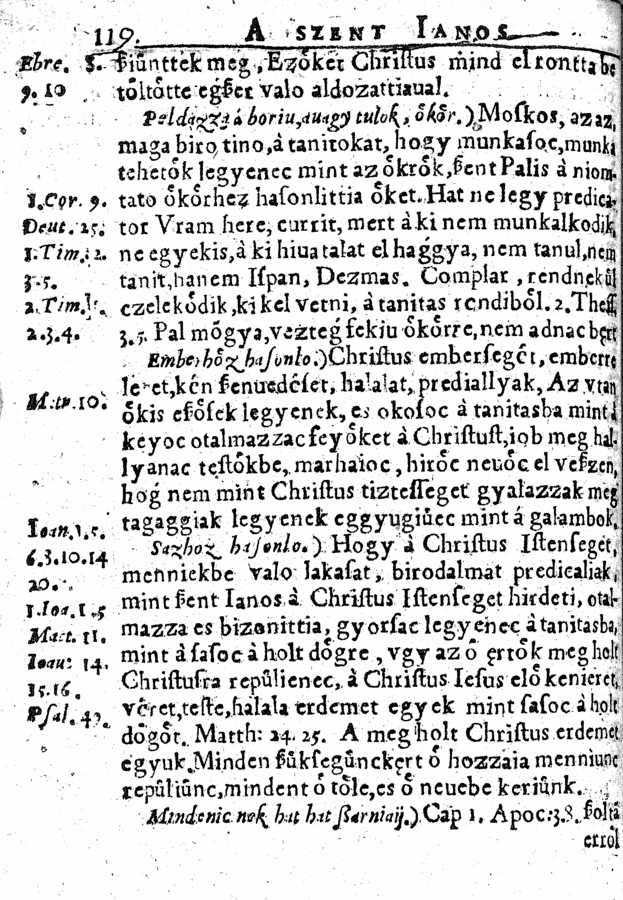 119. A SZENT IANOS
Ebre. 5. ßiůnttek meg, Ezőket Christus mind el rontta be
9. 10 tőltőtte egßer valo aldozattiaual.
Peldazza á boriu, auagy tulok, őkőr.) Moskos, az az,
maga biro tino, à tanitokat, hogy munkasoc, munka
tehetők legyenec mint az őkrők, ßent Palis à niom-
1. Cor. 9. tato őkőrhez hasonlittia őket. Hat ne legy predica-
Deut. 25. tor Vram here, currit, mert à ki nem munkalkodik,
1. Tim. 2. ne egyekis, à ki hiuatalat el haǵgya, nem tanul, nem
3. 5. tanit, hanem Ispan, Dezmas. Complar, rendnekűl
2. Tim. czelekődik, ki kel vetni, à tanitas rendiből. 2. Thess.
2. 3. 4. 3. 5. Pal mőgya, vezteg fekiu őkőrre, nem adnac bęrt
Emberhőz hasonlo.) Christus embersegét, emberre
letet, kén ßenuedését, halalat, prediallyak, Az vtan
Matt. 10. őkis erősek legyenek, es okosoc à tanitasba mint à
keyoc otalmazzac feyőket à Christust, iob meg hal-
lyanac tęstőkbe, marhaioc, hiroc neuőc el veßzen,
hoǵ nem mint Christus tiztesseget gyalazzak meg
Ioan. 1. 5. tagaggiak legyenek eggyugiűec mint á galambok.
6. 3. 10. 14 Sazhoz hasonlo.) Hogy à Christus Istenseget,
20. menniekbe valo lakasat, birodalmat predicaliak,
1. Ioa. 1. 5 mint ßent Ianos à Christus Istenseget hirdeti, otal-
Matt. 11. mazza es bizonittia, gyorsac legyenec à tanitasba,
Ioan: 14. mint à sasoc à holt dőgre, vgy az ő ęrtők meg holt
15. 16. Christusra repűlienec, à Christus Iesus elő kenieret,
Psal. 42. véret, teste, halala erdemet egyek mint sasoc à holt
dőgőt. Matth: 24. 25. A meg holt Christus erdemet
egyuk. Minden ßűksegűnckęrt ő hozzaia menniunc
repűliűnc, mindent ő tőle, es ő neuebe keriűnk.
Mindenic nek hat hat ßarniaij.) Cap 1. Apoc: 3. 8. ßolta
erről